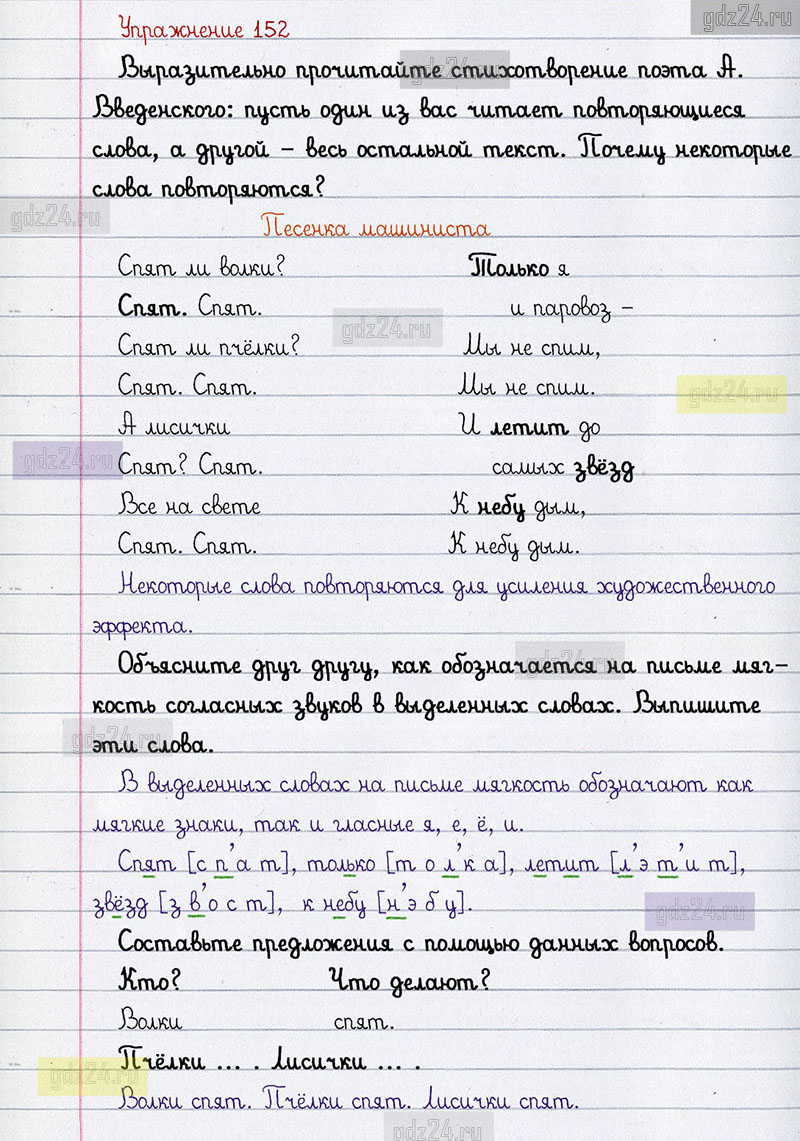 gdz24.ru
Упражнение 152
Выразительно прочитайте стихотворение поэта А.
gdz24.ru
Введенского: пусть один из вас читает повторяющиеся
слова, а другой – весь остальной текст. Почему некоторые
слова повторяются?
gdz24.ru
Песенка машиниста
Спят ли волки?
Спят. Спят.
Спят ли пчёлки?
Спят. Спят.
А лисички
Спят? Спят.
Все на свете
Спят. Спят.
Только я
и паровоз –
Мы не спим,
Мы не спим.
И летит до
самых звёзд
К небу дым,
К небу дым.
gdz24.ru
gdz24.ru
gdz24.ru
Некоторые слова повторяются для усиления художественного
эффекта.
Объясните друг другу, как обозначается на письме мяг-
gdz24.ru
кость согласных звуков в выделенных словах. Выпишите
эти слова.
gdz24.ru
В выделенных словах на письме мягкость обозначают как
мягкие знаки, так и гласные я, е, ё, и.
Спят [с п’ а т], только [т о л’ к а], летит [л’ э т’ и т],
звёзд [з в’ о с т], к небу [н’ э б у].
gdz24.ru
Составьте предложения с помощью данных вопросов.
Кто? Что делают?
Волки спят.
Пчёлки ... . Лисички ... .
gdz24.ru
Волки спят. Пчёлки спят. Лисички спят.
gdz24.ru